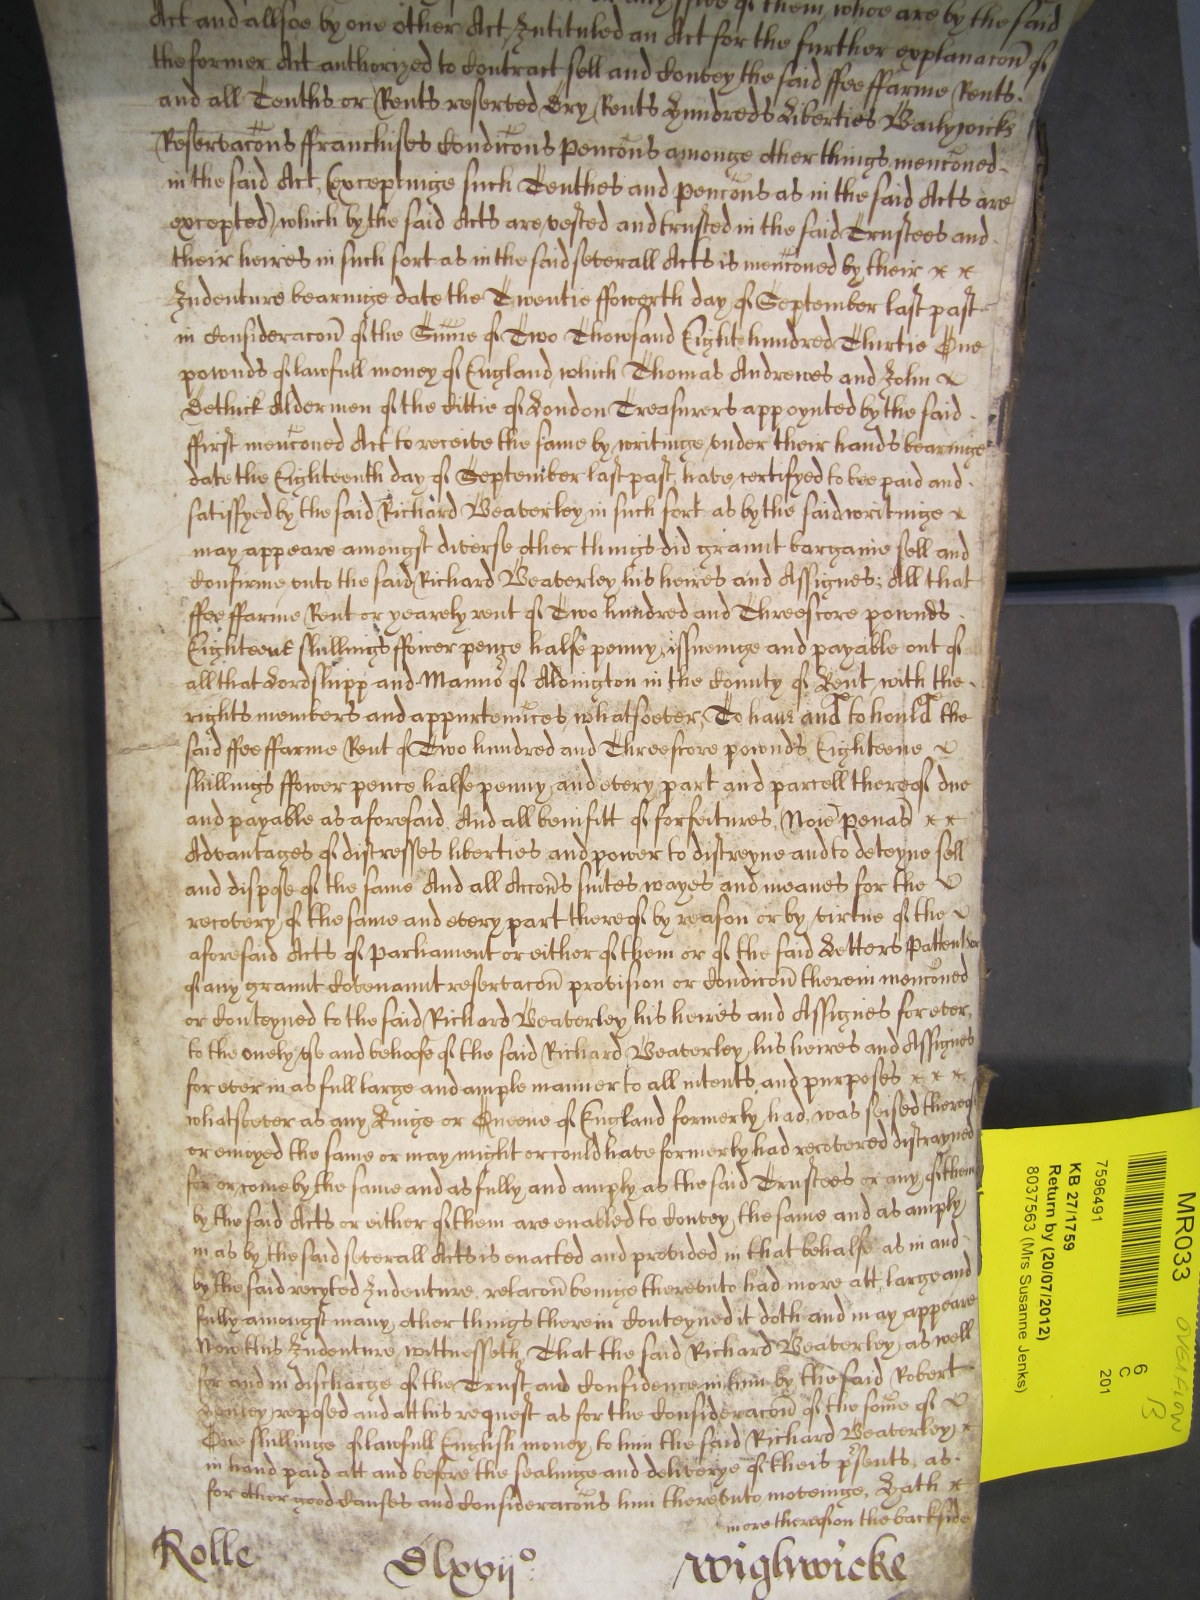 of them, whoe are by the said
Act and allsoe by one other Act, Intituled an Act for the further explanacon of
the former Act authorized to Contract sell and Convey the said ffee ffarme Rents.
and all Tenths or Rents reserved Dry Rents Hundreds Liberties Bailywicks
Reservacons ffranchises Condicons Pencons amonge other things menconed.
in the said Act, (exceptinge such Tenthes and pencons as in the said Acts are
excepted) which by the said Acts are vested and trusted in the said Trustees and.
their heires in such sort as in the said severall Acts is menconed by their
Indenture bearinge date the Twentie ffowerth day of September last past
in Consideracon of the Sume of Two Thowsand Eight hundred Thirtie One
pownds of lawfull money of England, which Thomas Andrewes and John
Dethick Aldermen of the Cittie of London Treasurers appoynted by the said.
ffirst menconed Act to receive the same by writinge, under their hands bearinge
date the Eighteenth day of September last past, have certifyed to bee paid and.
satisfyed by the said Richard Beaverley in such sort as by the said writinge
may appeare amongst diverse other things did graunt bargaine sell and
Confirme, unto the said Richard Beaverley, his heires and Assignes; All that
ffee ffarme Rent or yearely rent of Two hundred and Threescore pownds.
Eighteene shillings ffower pence halfe penny, issueinge and payable out of
all that Lordshipp and Mannor of Aldington in the County of Kent, with the.
rights members and appurtennces, whatsoever, To have and to hould the
said ffee ffarme Rent of Two hundred and Threescore pownds Eighteene
shillings ffower pence halfe penny, and every part and parcell thereof due
and payable as aforesaid, And all benifitt of forfeitures, Noie Penas
Advantages of distresses liberties and power to distreyne and to deteyne sell
and dispose of the same And all Accons suites wayes and meanes for the
recovery, of the same and every part thereof by reason or by, virtue of the
aforesaid Acts of Parliament or either of them or of the said Letters Pattent or
of any graunt Covenannt reservacon provision or Condicon therein menconed
or Conteyned to the said Richard Beaverley his heires and Assignes for ever,
to the onely use and behoofe of the said Richard Beaverley, his heires and Assignes
for ever in as full large and ample manner to all intents, and purposes
whatsoever as any Kinge or Queene of England formerly had, was seised thereof
or enioyed the same or may might or could have formerly had recovered distrayned
for or come by the same and as fully and amply as the said Trustees or any of them
by the said Acts or either of them are enabled to Convey, the same and as amply
in as by the said severall Acts is enacted and provided in that behalfe as in and.
by the said recyted Indenture, relacon beinge thereunto had more att large and
fully amongst many, other things therein Conteyned it doth and may appeare
Now this Indenture, wittnesseth, That the said Richard Beaverley, as well
for and in discharge of the Trust and Confidence in him by the said Robert
reposed and att his request as for the Consideracon of the some of
One shillinge of lawfull English money, to him the said Richard Beaverley
in hand paid att and before the sealinge and deliverye of theis psents, as.
for other good Causes and Consideracons him thereunto moveinge, Hath
more thereof on the backside
Rolle Dlxvijo: Wightwicke
MR033
OVERFLOW
13
6
C
201
7596491
KB 27/1759
Return by (20/07/2012)
8037563 (Mrs Susanne Jenks)